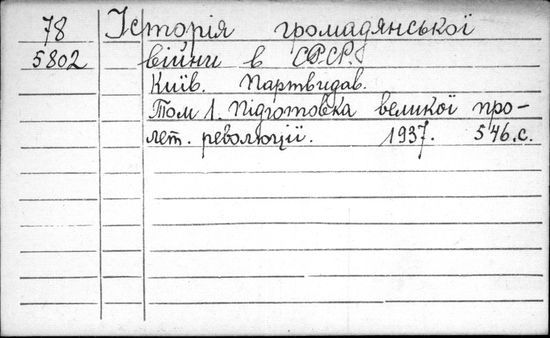 78 Історія громадянської
5802 війни в СРСР.
Київ. Партвидав.
Том 1. Підготовка великої про-
лет. революції. 1937. 546.с.